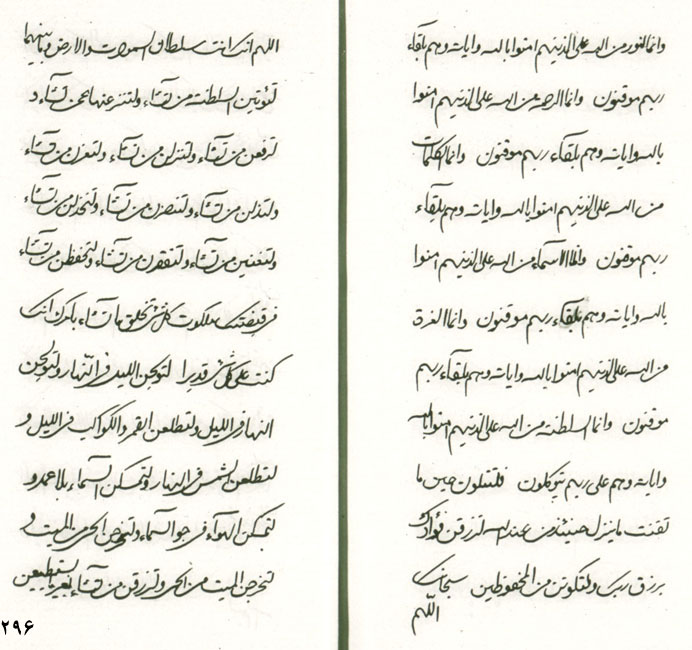 وانما النور من الله على الذينهم امنوا بالله واياته وهم بلقاء
ربهم موقنون وانما الرحمة من الله على الذينهم امنوا
بالله واياته وهم بلقاء ربهم موقنون وانما الكلمات
من الله على الذينهم امنوا بالله واياته وهم بلقاء
ربهم موقنون وانما الاسماء من الله على الذينهم امنوا
بالله واياته وهم بلقاء ربهم موقنون وانما العزة
من الله على الذينهم امنوا بالله واياته وهم بلقاء ربهم
موقنون وانما السلطنة من الله على الذينهم امنوا بالله
واياته وهم على ربهم يتوكلون فلتتلون حين ما
ما ينزل من عند الله لترزقن فؤادك
برزق ربك ولتكونن من المحفوظين سبحانك
اللهم
اللهم انك انت سلطان السموات والارض وما بينهما
لتؤتين السلطنة من تشاء ولتنزعنها عمن تشاء و
لترفعن من تشاء ولتنزلن من تشاء ولتعزن من تشاء
ولتذلن من تشاء ولتنصرن من تشاء ولتخذلن من تشاء
ولتغنين من تشاء ولتفقرن من تشاء ولتحفظن من تشاء
في قبضتك ملكوت كل شئ تخلق ما تشاء بامرك انك
كنت على كل شئ قديرا لتولجن الليل في النهار ولتولجن
النهار في الليل ولتطلعن القمر والكواكب في الليل و
لتطلعن الشمس في النهار ولتمسكن السماء بلا عمد و
لتمسكن الهواء في جو السماء ولتخرجن الحي من الميت و
لتخرجن الميت من الحي ولترزقن من تشاء بغير
۲۹۶